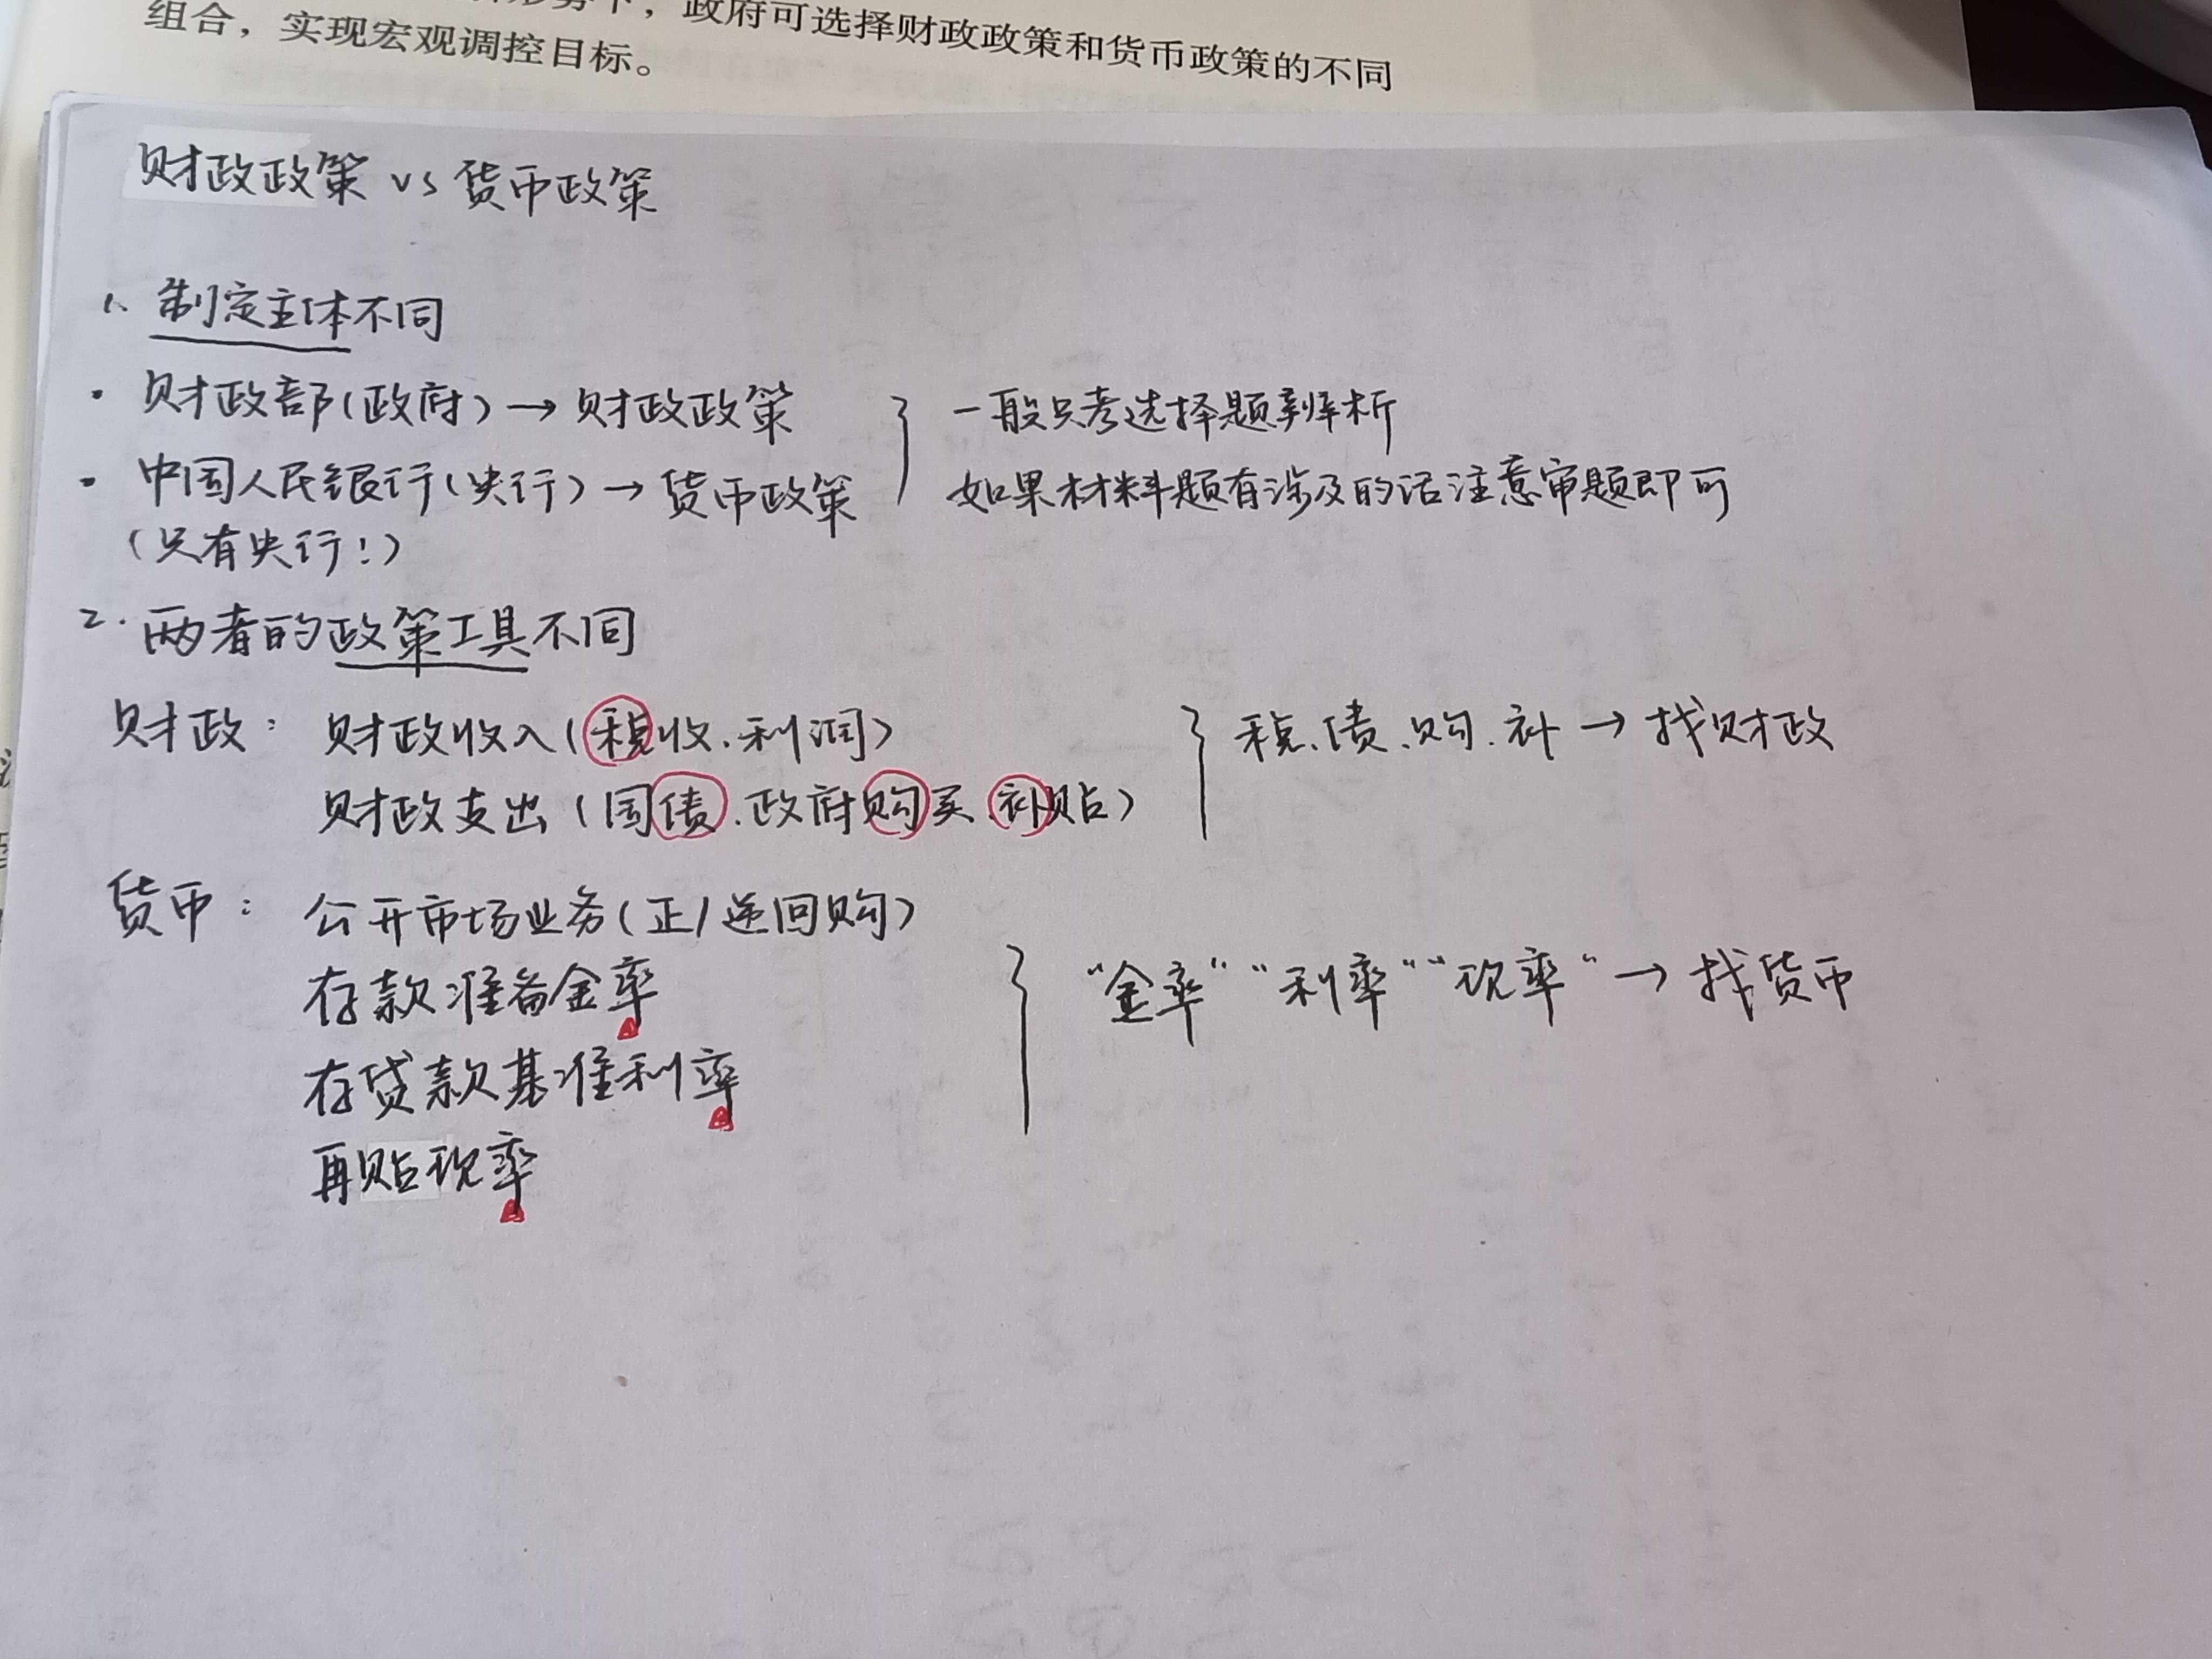 政府可选择财政政策和货币政策的不同
组合，实现宏观调控目标。
财政政策 vs 货币政策
1、制定主体不同
· 财政部(政府) → 财政政策
· 中国人民银行(央行) → 货币政策
(只有央行!)
一般只考选择题辨析
如果材料题有涉及的话注意审题即可
2. 两者的政策工具不同
财政: 财政收入(税收、利润)
财政支出(国债、政府购买、补贴)
税、债、购、补 → 找财政
货币: 公开市场业务(正/逆回购)
存款准备金率
存贷款基准利率
再贴现率
"金率" "利率" "现率" → 找货币